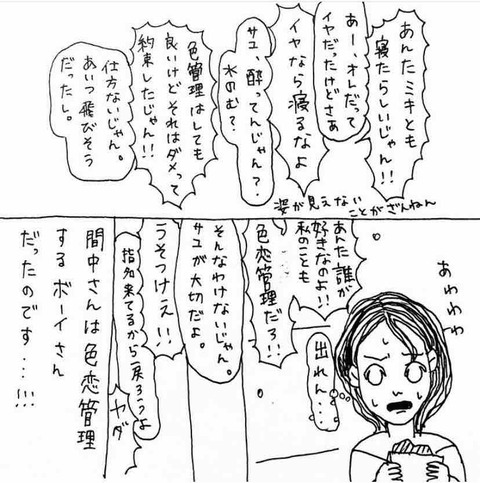 あんたミキとも
寝たらしいじゃん!!
あー、オレだって
イヤだったけどさあ
イヤなら寝るなよ
サユ、酔ってんじゃん?
水のむ?
色管理はしても
良いけどそれはダメって
約束したじゃん!!
仕方ないじゃん。
あいつ飛びそう
だったし。
姿が見えない
ことがざんねん
あわわわ
出れん...
あんた誰が
好きなのよ!!
私のことも
色恋管理だろ!!
そんなわけないじゃん。
サユが大切だよ。
うそつけえ!!
指名来てるから戻ろうよ
ヤダ
間中さんは色恋管理
するボーイさん
だったのです...!!!